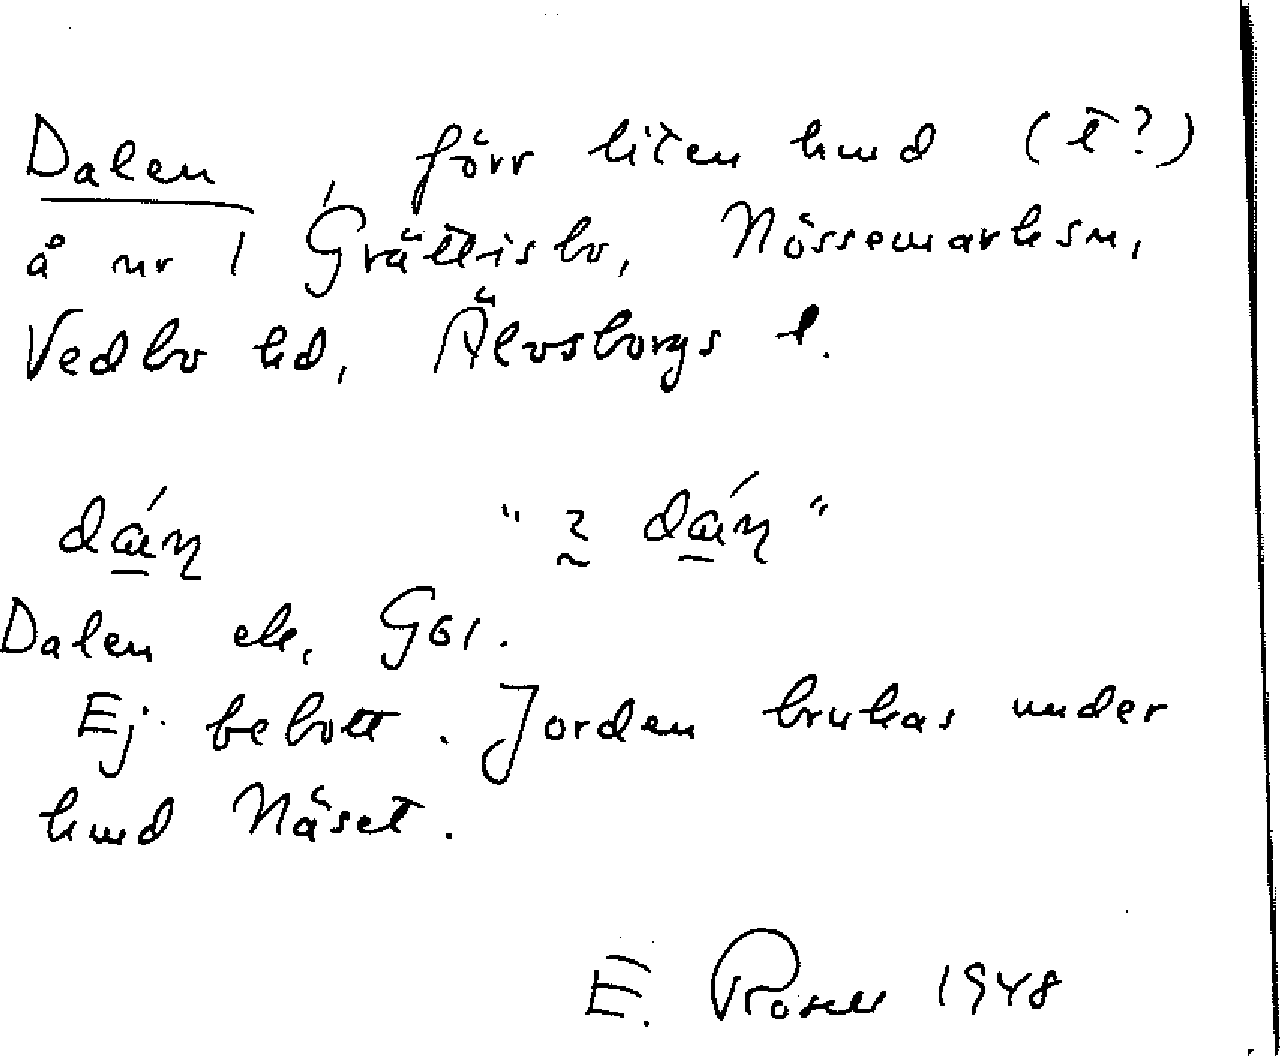 Dalen, förr liten hmd (t?)
å nr 1 Grättisbo, Nössemarks sn,
Vedbo hd, Älvsborgs l.
dán " dán"
Dalen ek, G61.
Ej bebott. Jorden brukas under
hmd Näset.
E. Rosell 1948